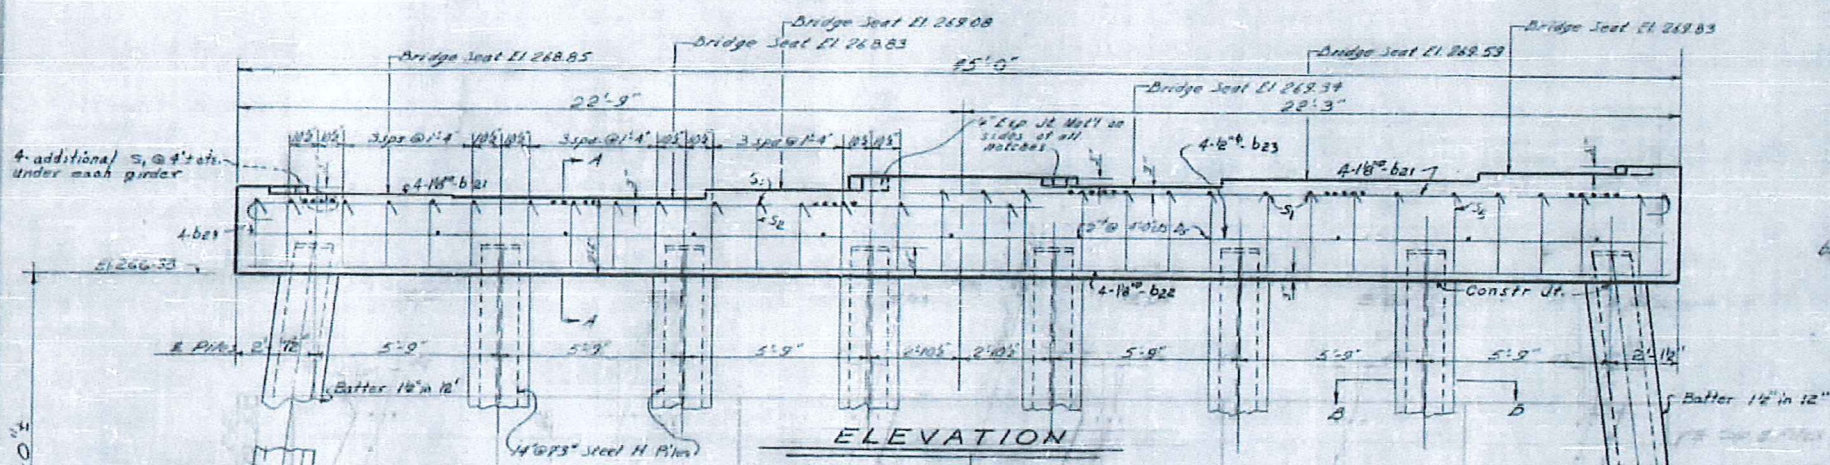 Bridge Seat El. 269.08
Bridge Seat El. 269.83
Bridge Seat El. 268.83
Bridge Seat El. 268.85
Bridge Seat El. 269.59
45'-0"
Bridge Seat El. 269.34
22'-9"
22'-3"
10½" 10½" 3 sps @ 1'-4" 10½" 10½" 3 sps @ 1'-4" 10½" 10½" 3 sps @ 1'-4" 10½" 10½"
Exp. Jt. Mat'l on
sides of all
notches
4-½"ϕ b23
4- additional S1 @ 4" cts.
under each girder
A
4-1⅛"ϕ-b21
S1
4-1⅛"ϕ-b21
S2
S1
S3
4-b23
El. 266.33
4-1⅛"ϕ-b22
Constr. Jt.
A
℄ Piles 2'- 5'-9" 5'-9" 5'-9" 2'-10½" 2'-10½" 5'-9" 5'-9" 5'-9" 2'-1½"
Batter 1½" in 12"
B
B
Batter 1½" in 12"
14" @ 73# Steel H Piles
ELEVATION